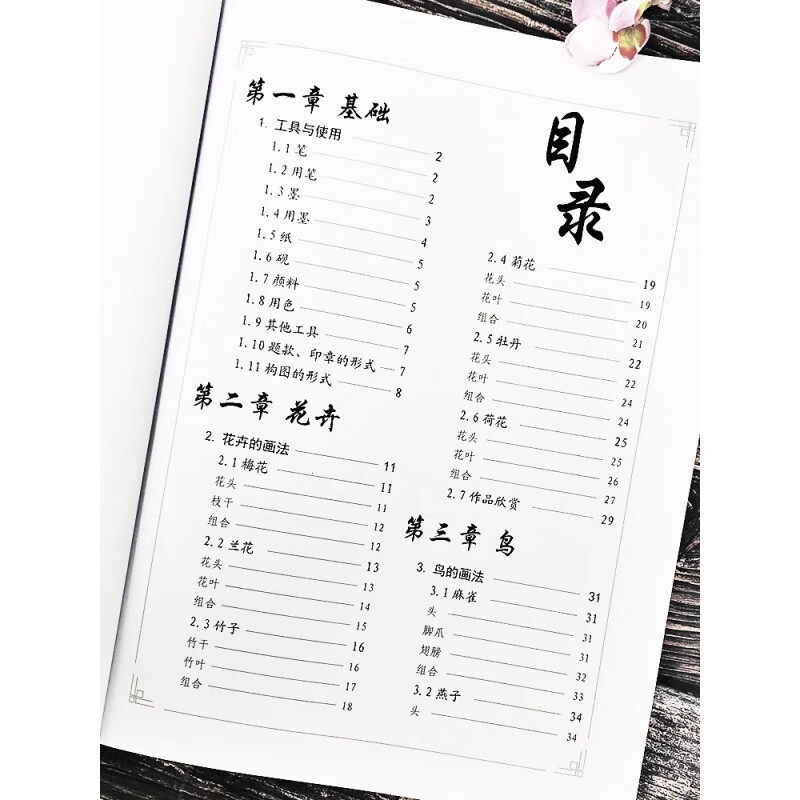 目录
第一章 基础
1. 工具与使用 2
1.1 笔 2
1.2 用笔 2
1.3 墨 3
1.4 用墨 4
1.5 纸 5
1.6 砚 5
1.7 颜料 5
1.8 用色 6
1.9 其他工具 7
1.10 题款、印章的形式 7
1.11 构图的形式 8
第二章 花卉
2. 花卉的画法 11
2.1 梅花 11
花头 11
枝干 12
组合 12
2.2 兰花 13
花头 13
花叶 14
组合 15
2.3 竹子 16
竹干 16
竹叶 17
组合 18
2.4 菊花 19
花头 19
花叶 20
组合 21
2.5 牡丹 22
花头 22
花叶 24
组合 24
2.6 荷花 25
花头 25
花叶 26
组合 27
2.7 作品欣赏 29
第三章 鸟
3. 鸟的画法 31
3.1 麻雀 31
头 31
脚爪 31
翅膀 32
组合 33
3.2 燕子 34
头 34